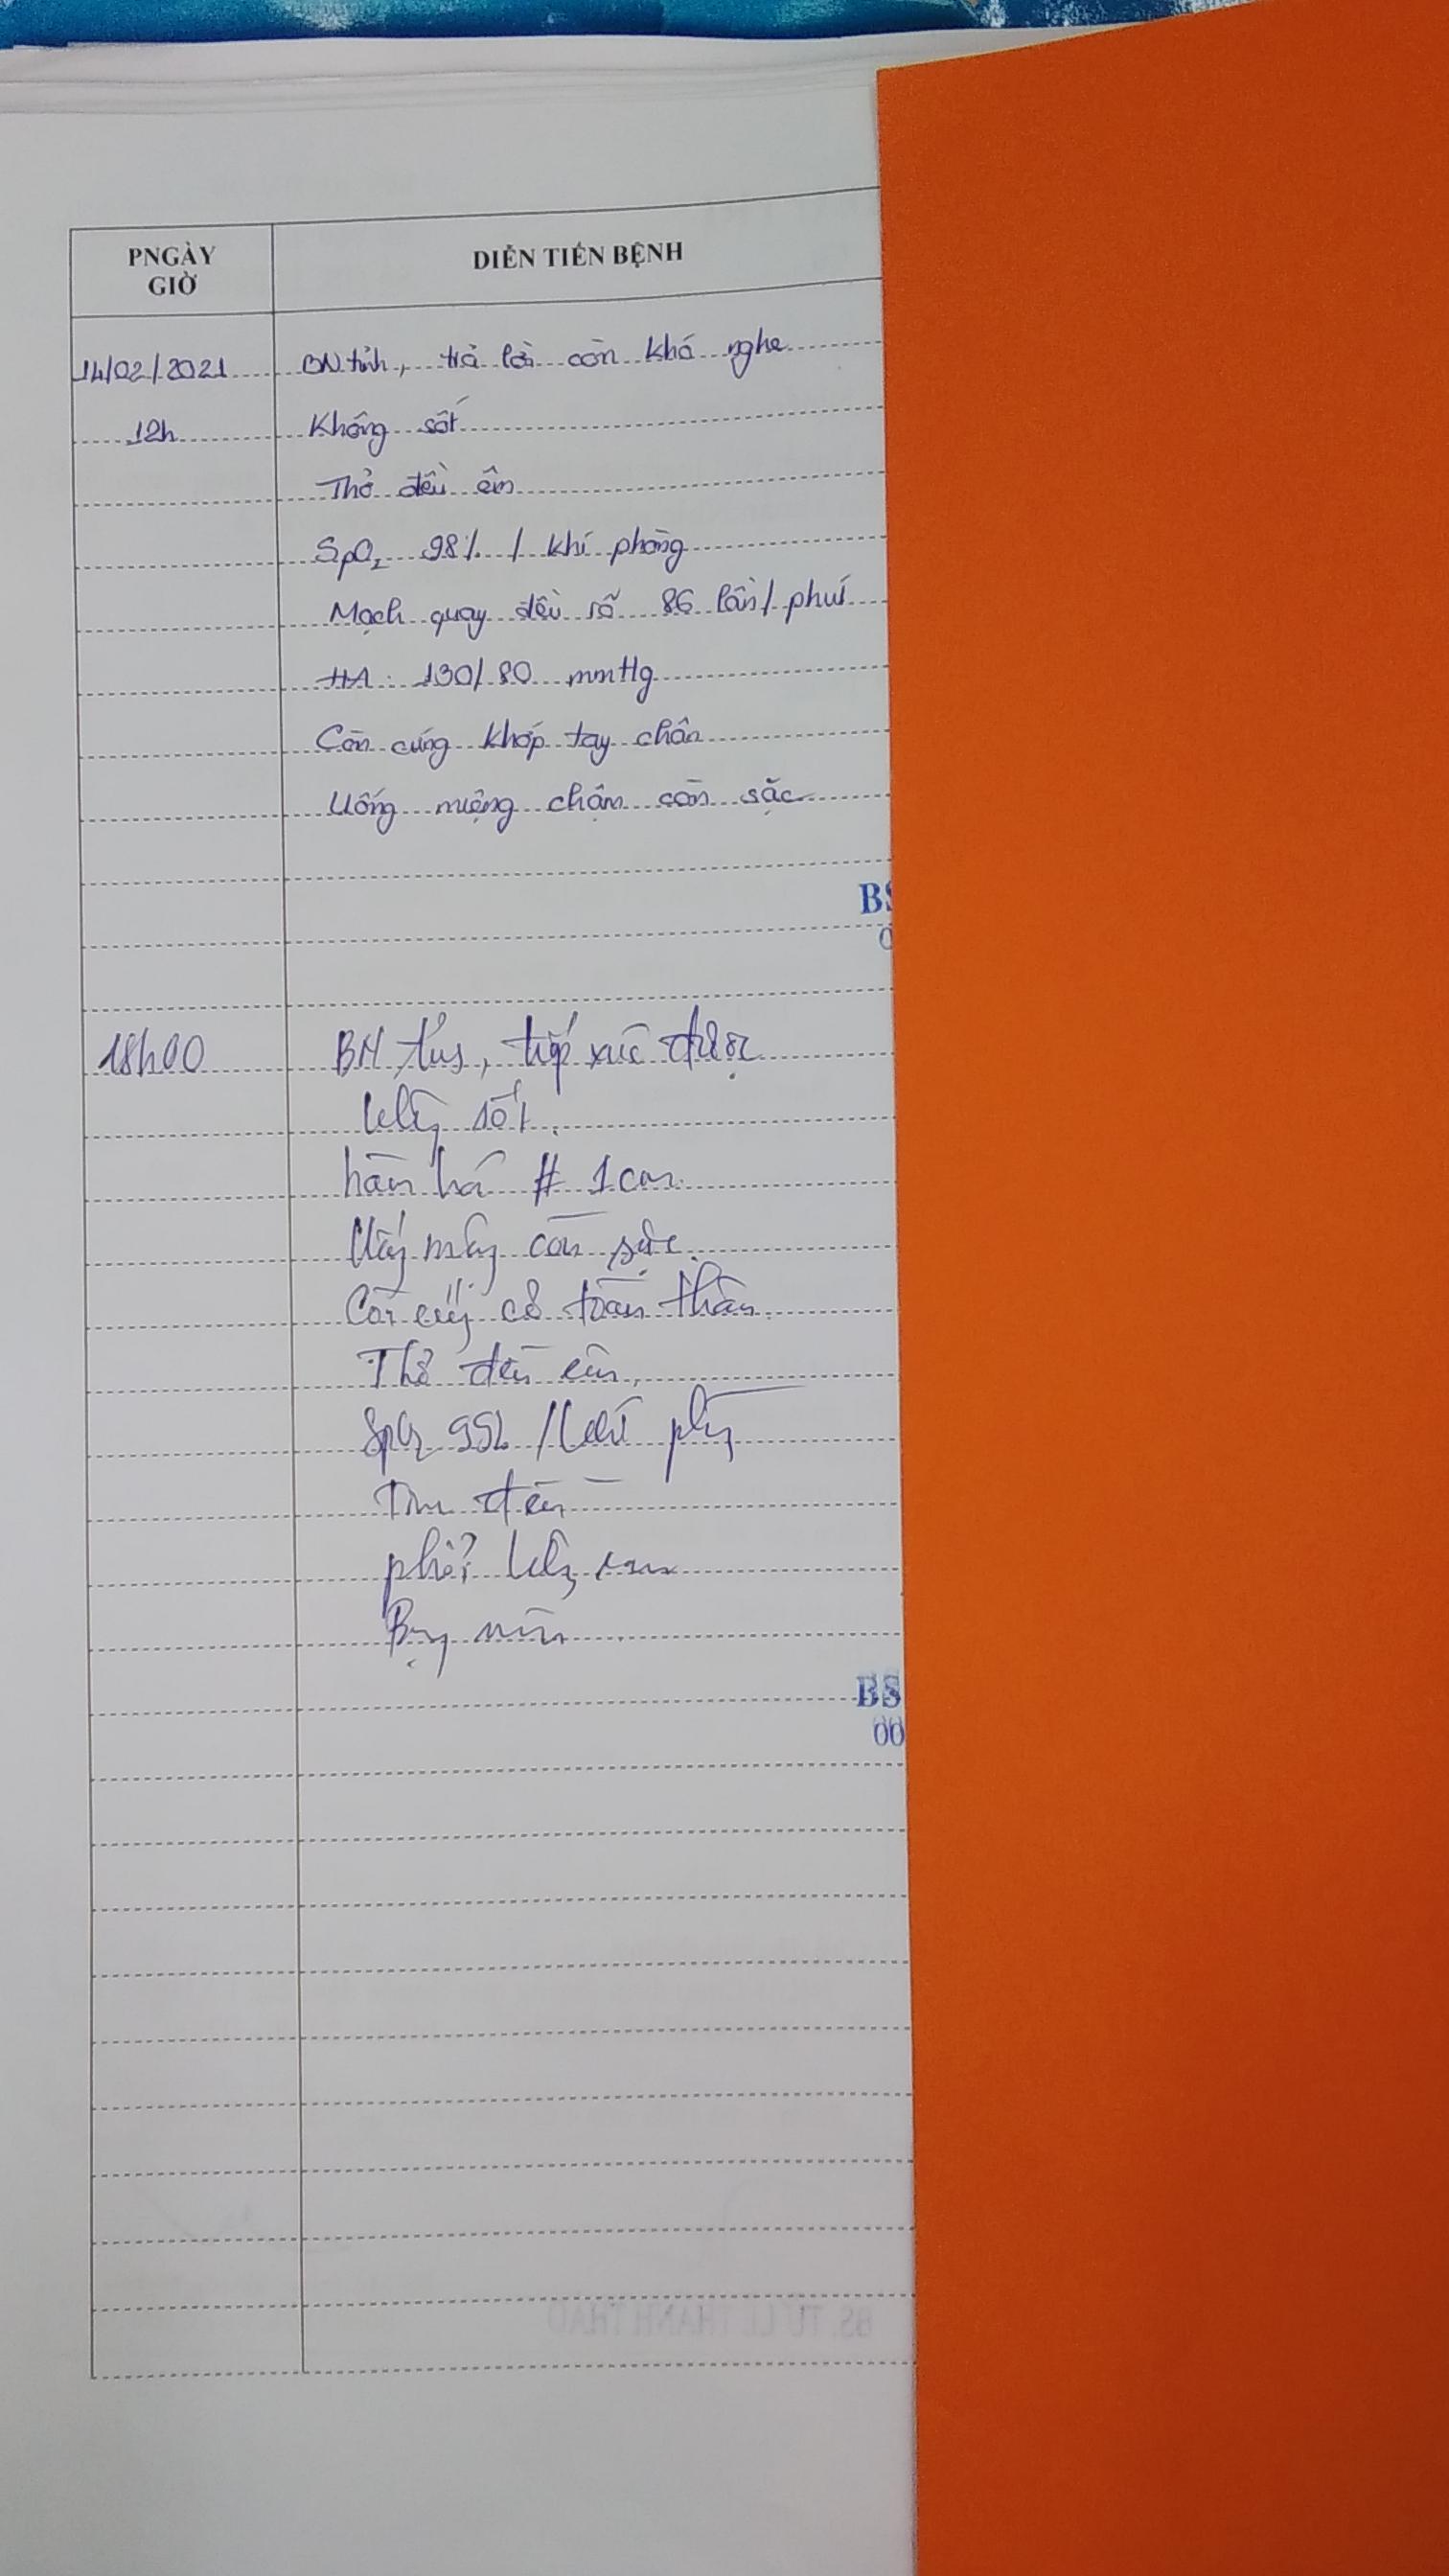 PNGÀY
GIỜ
DIỄN TIẾN BỆNH
14/02/2021 BN tỉnh, trả lời còn khó nghe
12h Không sốt
Thở đều êm
SpO₂ 98% / khí phòng
Mạch quay đều rõ 86 lần/ phút
HA: 130/80 mmHg
Còn cứng khớp tay chân
Uống miệng chậm còn sặc
BS
0
18h00 BN tỉnh, tiếp xúc được
sốt.
há # 1cm
còn sặc.
Còn cứng cơ toàn thân
Thở đều êm,
SpO₂ / khí
Tim đều
phổi
Bụng mềm
BS
00